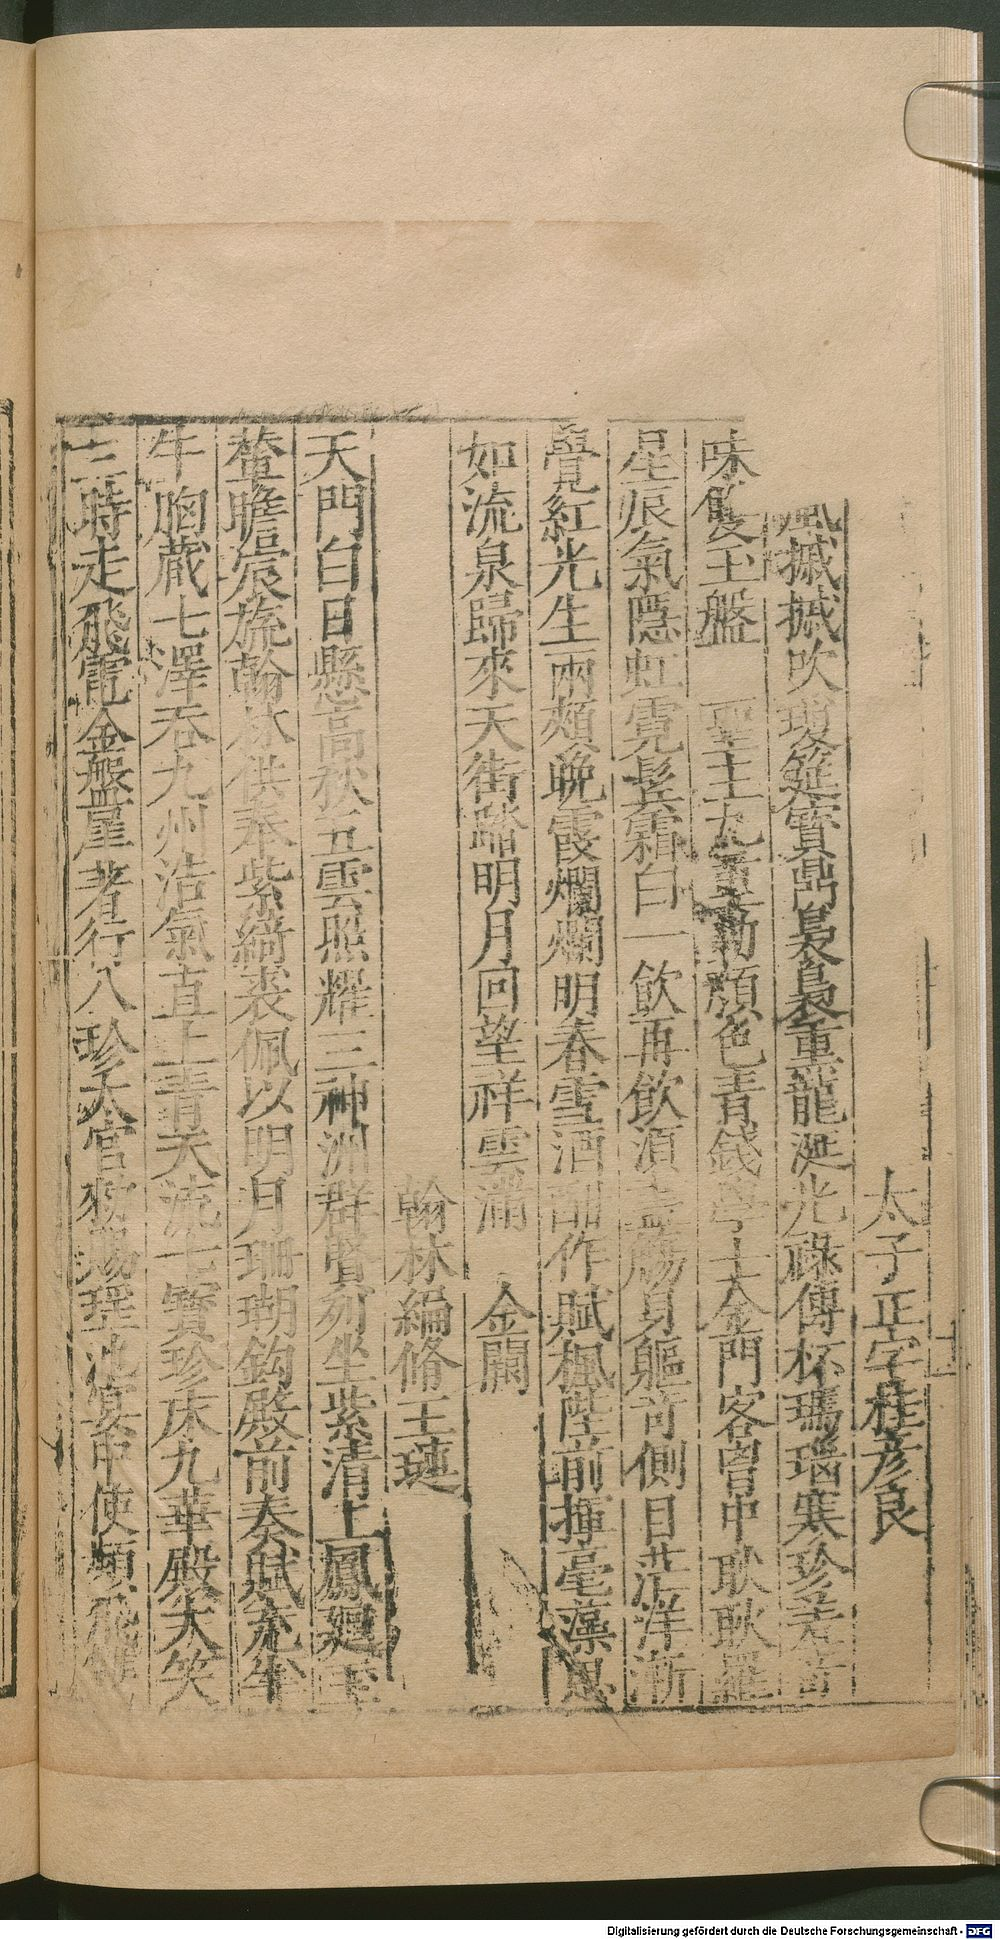 太子正字桂彦良
風摵摵吹瓊筵寳鼎裊裊熏龍涎光祿傳杯瑪瑙寒珍羞
味餕玉盤　聖主九重動顔色青錢學士金門客曽中耿耿羅
星辰氣隱虹霓髩霜白一飲再飲須盡觴身軀苛側目茫洋漸
覺紅光生兩頰晩霞爛爛明春雪酒酣作賦楓陛前揮毫藻思
如流泉歸來天街踏明月回望祥雲滿　金闕
翰林編脩王璉
天門白日懸高秋五雲照耀三神洲群督列坐紫清上鳳廻
螯瞻宸旒翰林供奉紫綺裘佩以明月珊瑚鈎殿前奏賦充牛
牛胸蔵七澤吞九州浩氣直上青天流七寳珍床九華殿天笑
三時走飛電金盤犀著行八珍大官勑賜瑶池宴中使頻飛
Digitalisierung gefördert durch die Deutsche Forschungsgemeinschaft - DFG